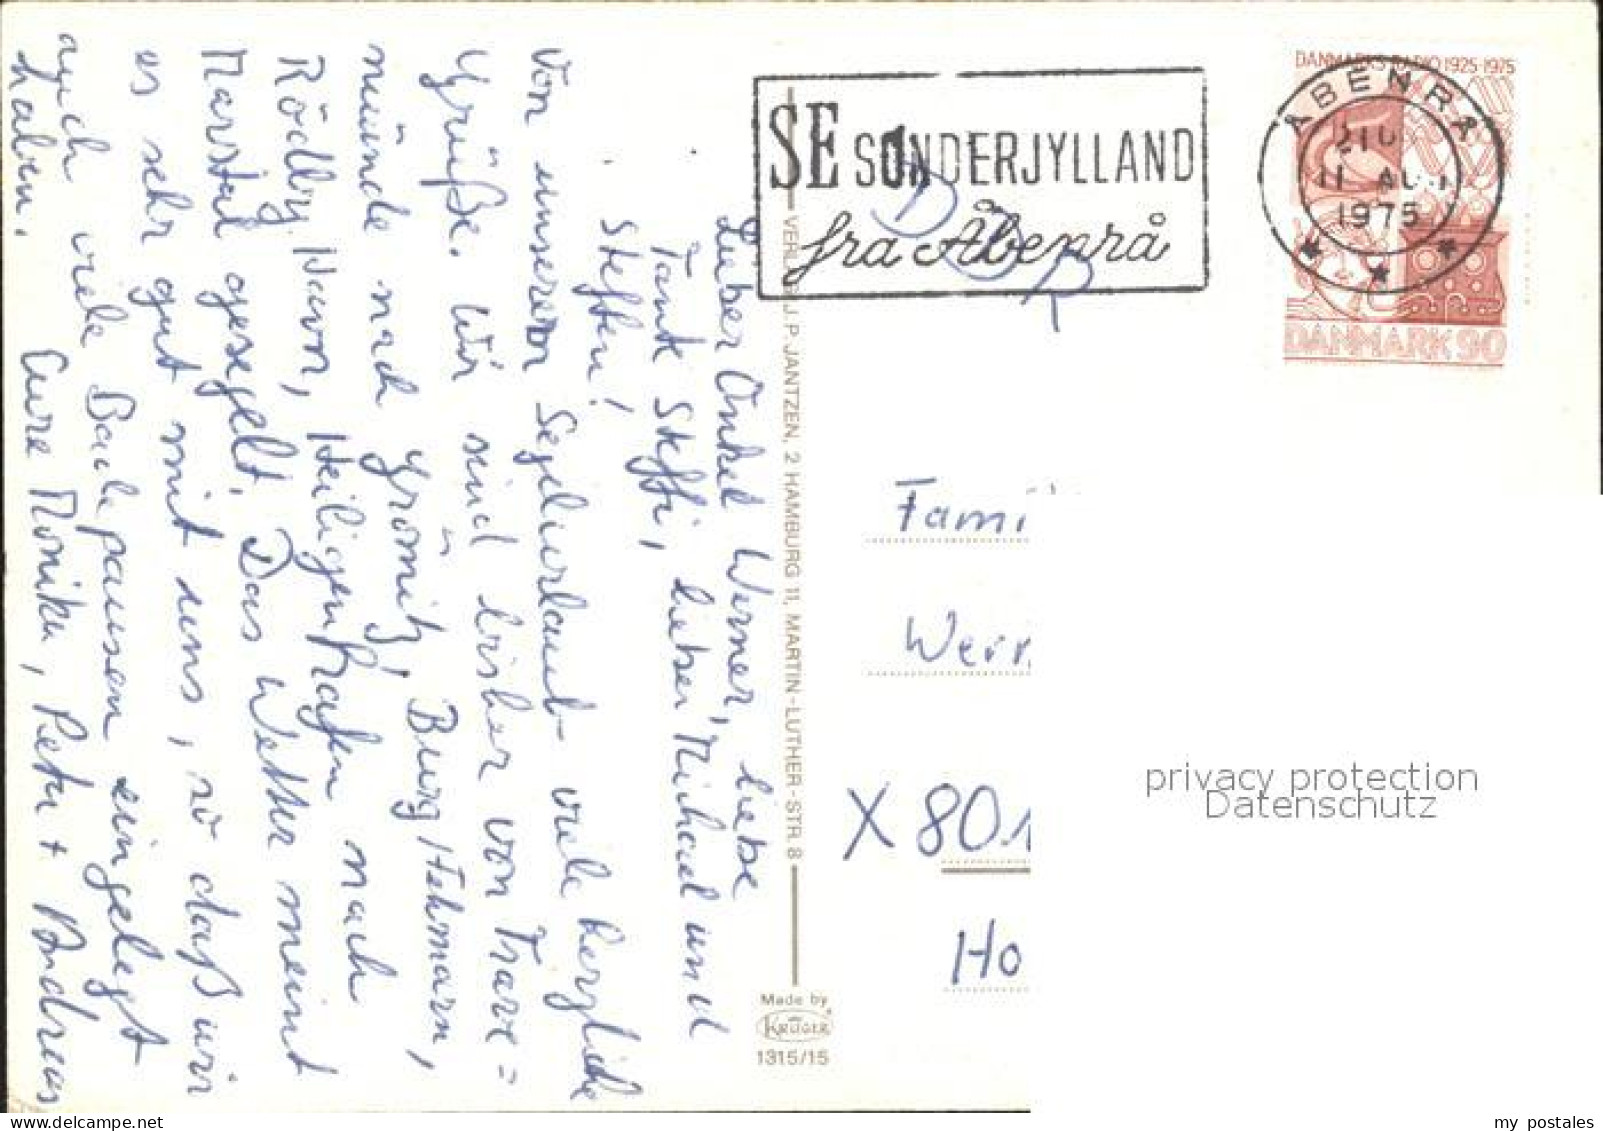 Lieber Onkel Werner, liebe
Tante Steffi, lieber Michael und
Steffen!
Von unserem Segelurlaub viele herzliche
Grüße. Wir sind bisher von Trave=
münde nach Grömitz, Burg/Fehmarn,
Rödby Havn, Heiligenhafen nach
Marstal gesegelt. Das Wetter meint
es sehr gut mit uns, so daß wir
auch viele Badepausen eingelegt
haben. Eure Monika, Peter + Andreas
VERLAG J. P. JANTZEN, 2 HAMBURG 11, MARTIN-LUTHER-STR. 8
Made by
KRÜGER
1315/15
SE SØNDERJYLLAND
fra Åbenrå
DDR
DANMARKS RADIO 1925-1975
ÅBENRÅ
11 AUG
1975
DANMARK 90
Fami
Wern
X 801
Ho
privacy protection
Datenschutz
my postales